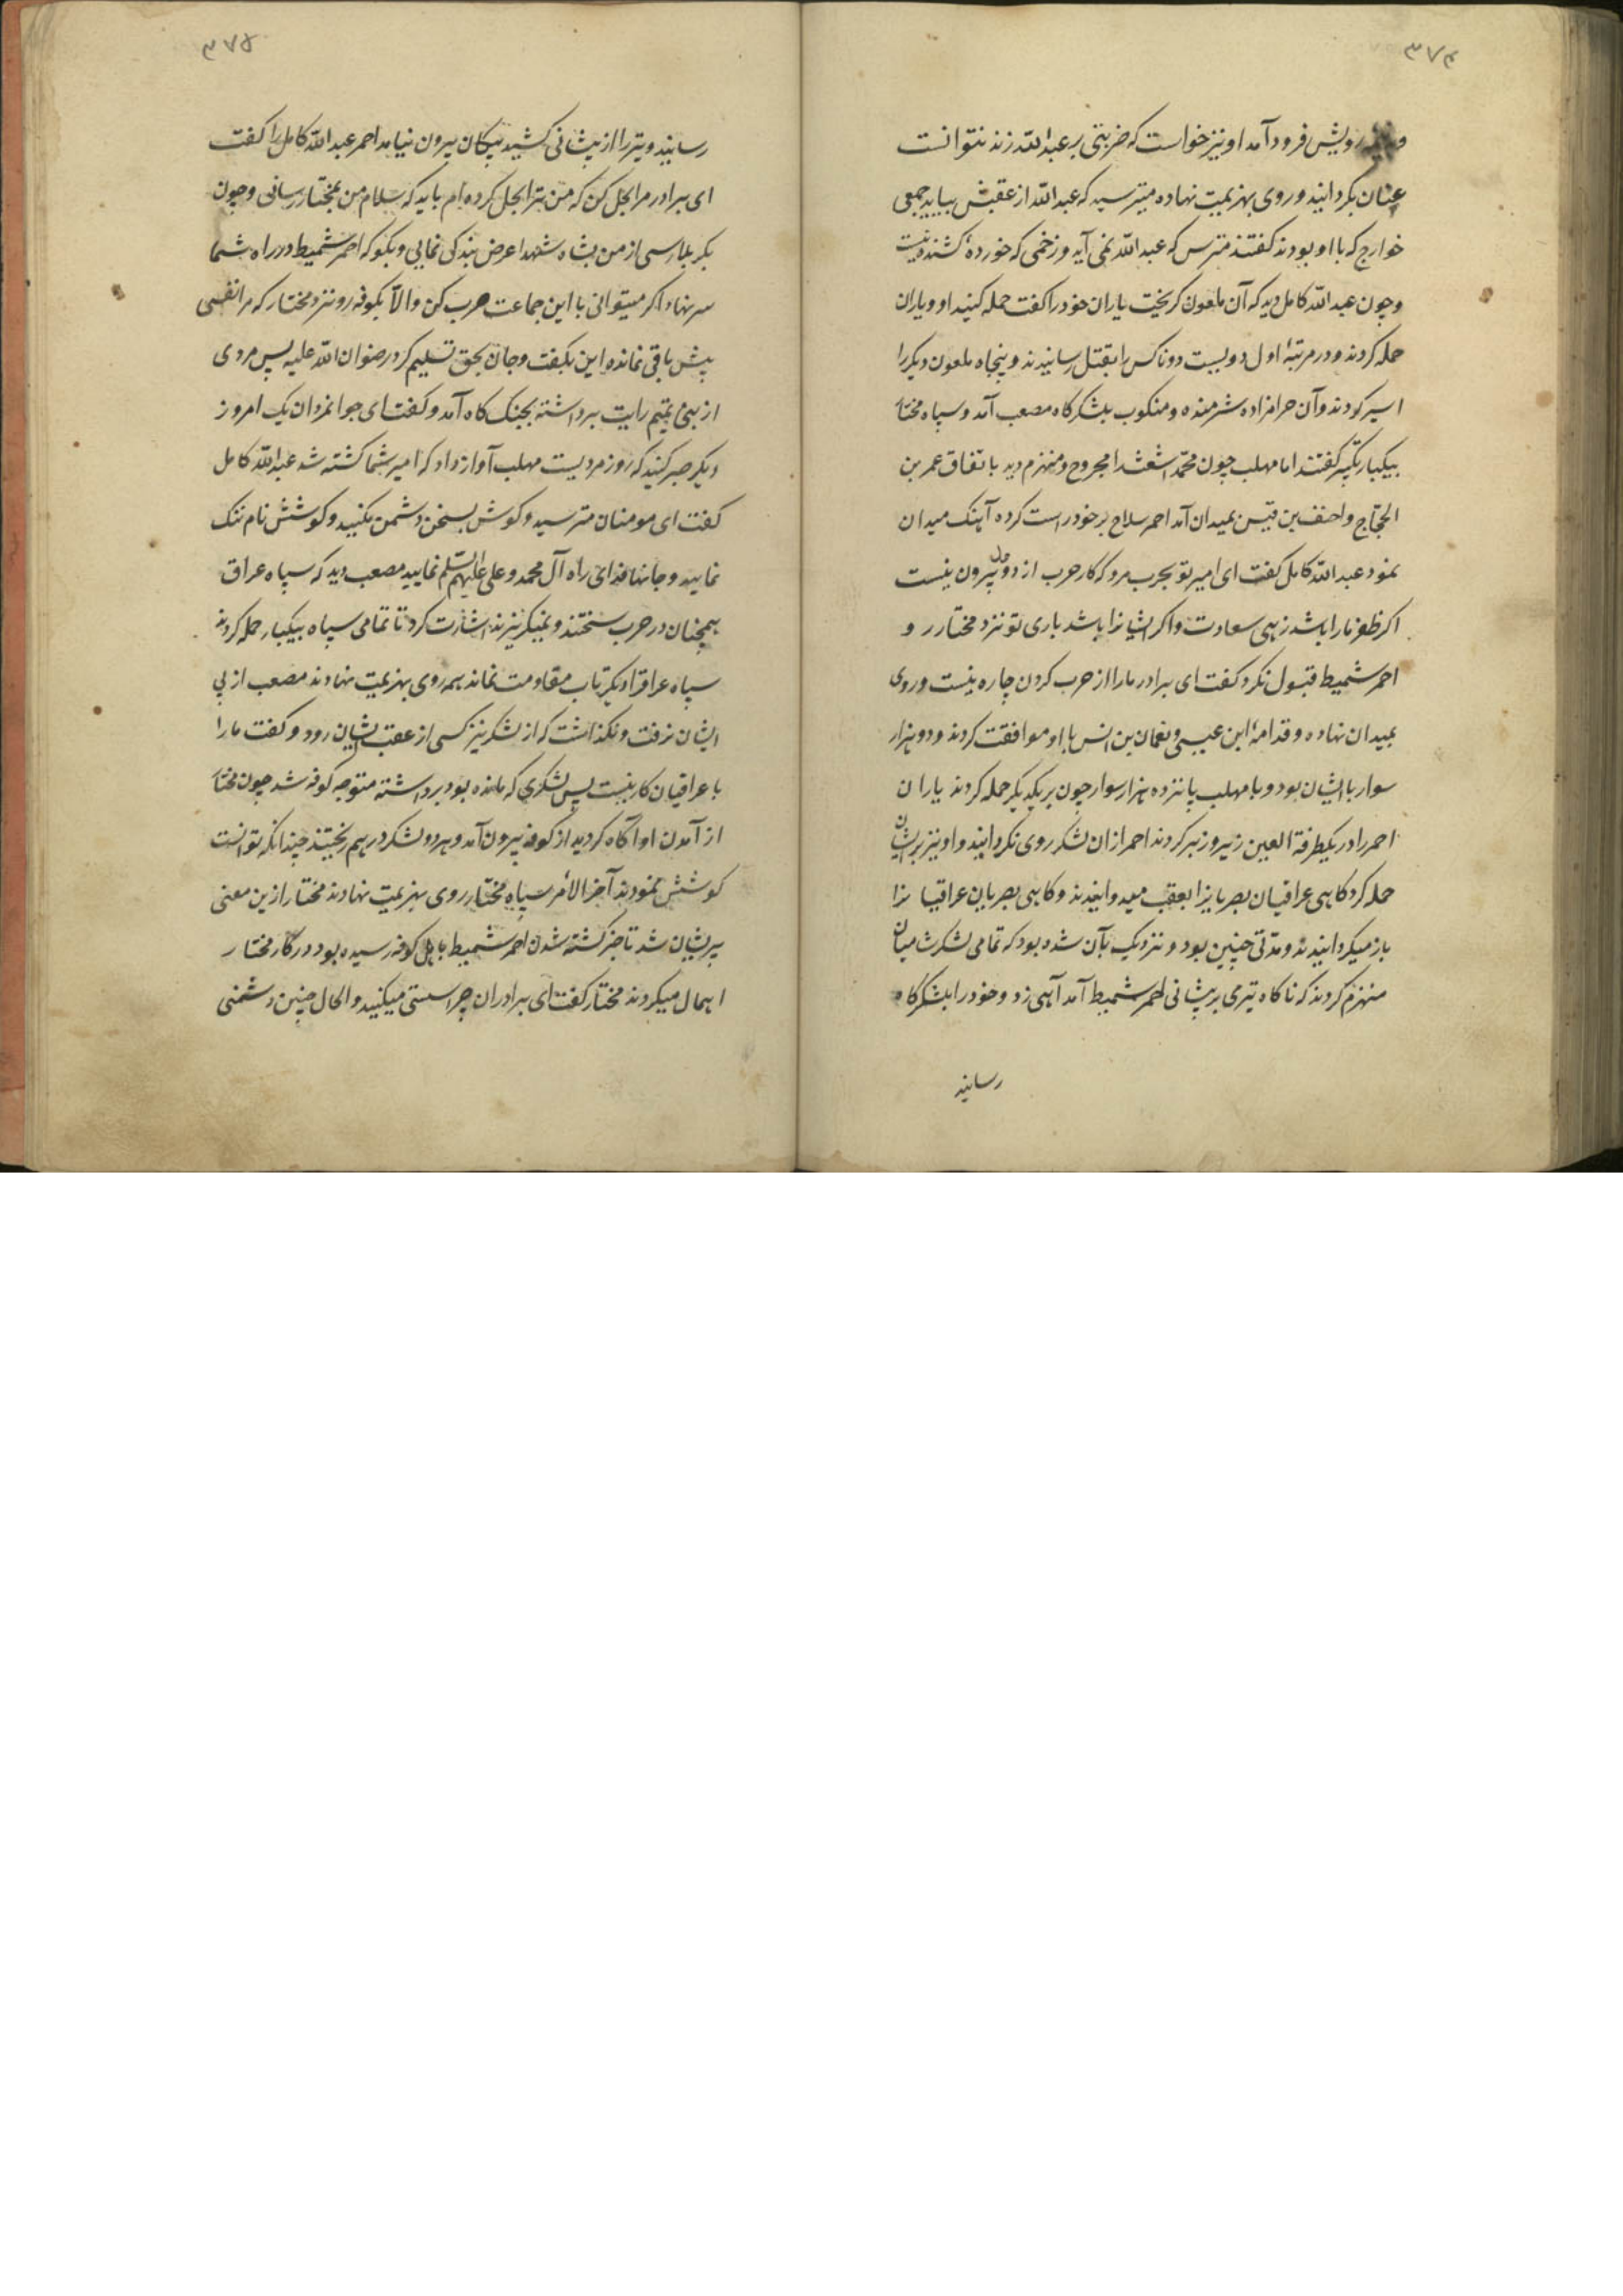 ۳۷۴
رویش فرود آمد او نیز خواست که ضربتی بر عبدالله زند نتوانست
عنان بکردانید و روی بهزیمت نهاده میترسید که عبدالله از عقبش بیاید جمعی
خوارج که با او بودند کفتند مترس که عبدالله نمی آید و زخمی که خورده کشنده نیست
و چون عبدالله کامل دید که آن ملعون کریخت یاران خود را کفت حمله کنید او و یاران
حمله کردند و در مرتبهٔ اول دویست و دو ناکس را بقتل رسانیدند و پنجاه ملعون دیکر را
اسیر کردند و آن حرامزاده شرمنده و منکوب بلشکرکاه مصعب آمد و سپاه مختار
بیکبار تکبیر کفتند اما مهلب چون محمد اشعث را مجروح و منهزم دید باتفاق عمر بن
الحجاج و احنف بن قیس بمیدان آمد احمر سلاح بر خود راست کرده آهنک میدان
نمود عبدالله کامل کفت ای امیر تو بحرب مرو که کار حرب از دو حال بیرون نیست
اکر ظفر ما را باشد زهی سعادت و اکر ایشانرا باشد باری تو نزد مختار رو
احمر شمیط قبول نکرد کفت ای برادر ما را از حرب کردن چاره نیست و روی
بمیدان نهاده و قدامهٔ ابن عیسی و نعمان بن انس با او موافقت کردند و دو هزار
سوار با ایشان بود و با مهلب پانزده هزار سوار چون بر یکدیکر حمله کردند یاران
احمر را در یکطرفة العین زیر و زبر کردند احمر از ان لشکر روی نکردانید و او نیز بر ایشان
حمله کرد کاهی عراقیان بصریانرا بعقب میدوانیدند و کاهی بصریان عراقیانرا
باز میکردانیدند و مدتی چنین بود و نزدیک بآن شده بود که تمامی لشکرشان
منهزم کردند که ناکاه تیری بر پیشانی احمر شمیط آمد آهی زد و خود را بلشکرکاه
رسانید
۳۷۵
رسانید و تیر را از پیشانی کشید پیکان بیرون نیامد احمر عبدالله کامل را کفت
ای برادر مرا بحل کن که من ترا بحل کرده ام باید که سلام من بمختار رسانی و چون
بکربلا رسی از من بشاه شهدا عرض بندکی نمایی و بکو که احمر شمیط در راه شما
سر نهاد اکر میتوانی با این جماعت حرب کن و الّا بکوفه رو نزد مختار که مرا نفسی
بیش باقی نمانده این بکفت و جان بحق تسلیم کرد رضوان الله علیه پس مردی
از بنی تمیم رایت برداشته بجنک کاه آمد و کفت ای جوانمردان یک امروز
دیکر صبر کنید که روز مردیست مهلب آواز داد که امیر شما کشته شد عبدالله کامل
کفت ای مومنان مترسید و کوش بسخن دشمن مکنید و کوشش نام ننک
نمایید و جانها فدای راه آل محمد و علی علیهم السلم نمایید مصعب دید که سپاه عراق
همچنان در حرب سختند و نمیکریزند اشارت کرد تا تمامی سپاه بیکبار حمله کردند
سپاه عراقرا دیکر تاب مقاومت نماند همه روی بهزیمت نهادند مصعب از پی
ایشان نرفت و نکذاشت که از لشکر نیز کسی از عقب ایشان رود و کفت ما را
با عراقیان کار نیست پس لشکری که مانده بود برداشته متوجه کوفه شد چون مختار
از آمدن او آکاه کردید از کوفه بیرون آمد و هر دو لشکر در هم ریختند چندانکه توانست
کوشش نمودند آخر الامر سپاه مختار روی بهزیمت نهادند مختار ازین معنی
پریشان شد تا خبر کشته شدن احمر شمیط باهل کوفه رسیده بود در کار مختار
اهمال میکردند مختار کفت ای برادران چرا سستی میکنید و الحال چنین دشمنی